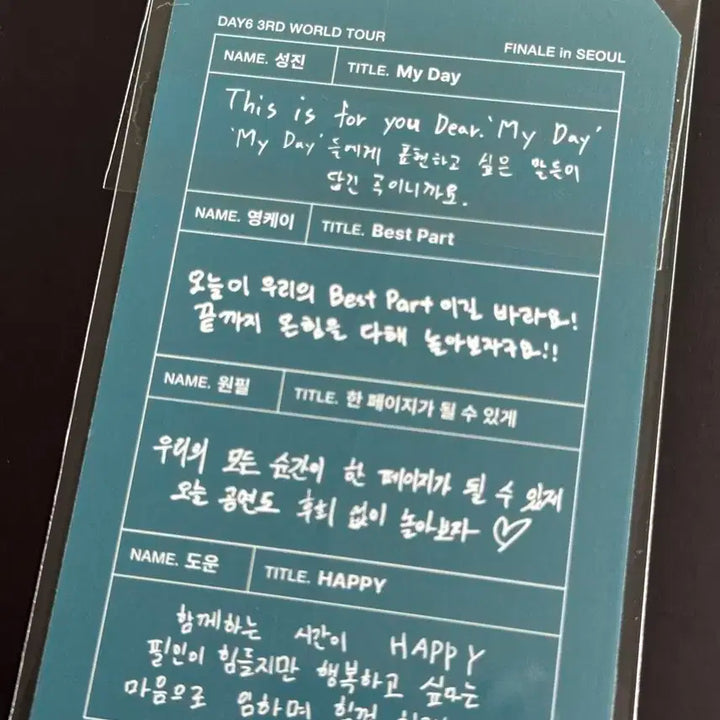 DAY6 3RD WORLD TOUR
FINALE in SEOUL
NAME. 성진
TITLE. My Day
This is for you Dear.'My Day'
'My Day'들에게 표현하고 싶은 말들이
담긴 곡이니까요.
NAME. 영케이
TITLE. Best Part
오늘이 우리의 Best Part 이길 바라요!
끝까지 온힘을 다해 놀아보자구요!!
NAME. 원필
TITLE. 한 페이지가 될 수 있게
우리의 모든 순간이 한 페이지가 될 수 있게
오늘 공연도 후회 없이 놀아보자♡
NAME. 도운
TITLE. HAPPY
함께하는 시간이 HAPPY
필인이 힘들지만 행복하고 싶다는
마음으로 임하며